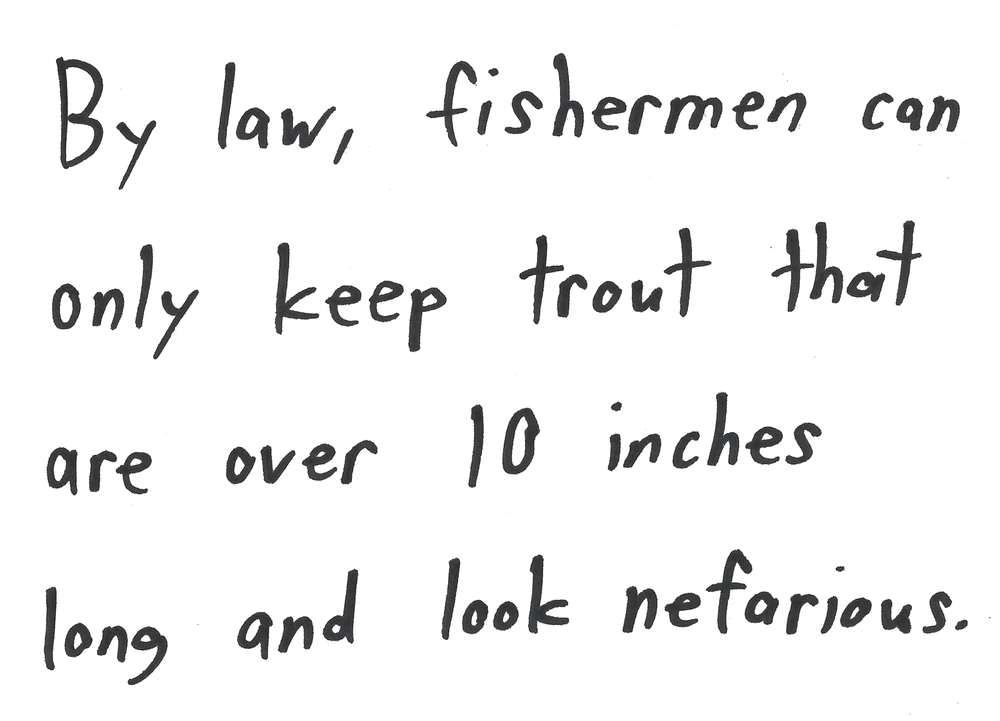 By law, fishermen can
only keep trout that
are over 10 inches
long and look nefarious.